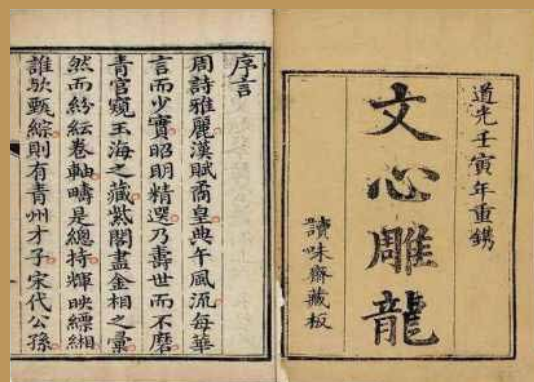 道光壬寅年重鐫
文心雕龍
讀味齋藏板
序言
周詩雅麗漢賦喬皇典午風流每華
言而少實昭明精選乃壽世而不磨
青宮窺玉海之藏紫閣盡金相之彙
然而紛紜卷軸疇是總持輝映縹緗
誰歟甄綜則有青州才子宋代公孫